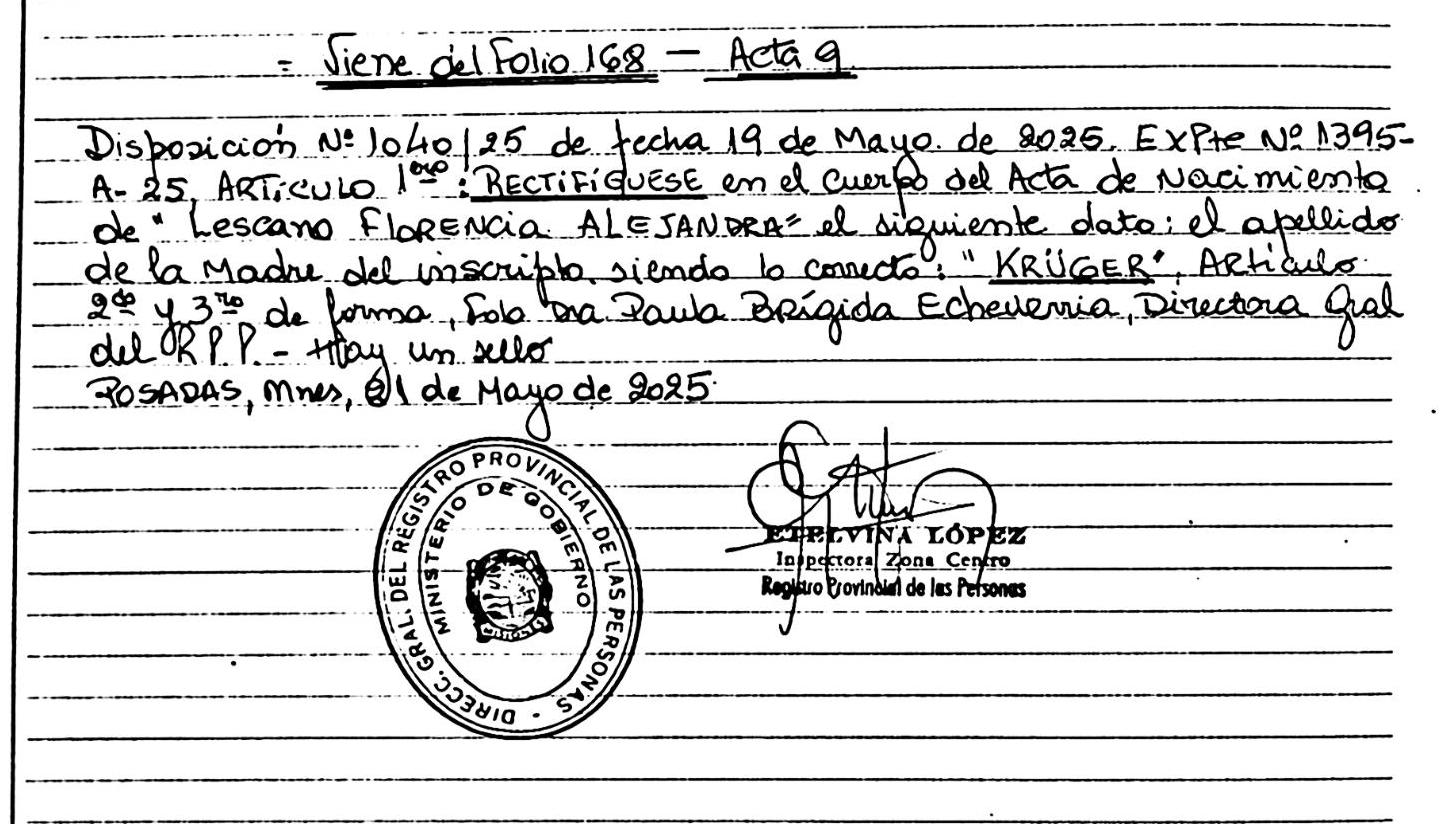 = Viene del Folio 168 - Acta 9
Disposición Nº 1040/25 de fecha 19 de Mayo. de 2025. EXPte Nº 1395-
A-25, ARTíCULO 1ero: RECTIFíQUESE en el cuerpo del Acta de Nacimiento
de "Lescano FLORENCIA ALEJANDRA" el siguiente dato: el apellido
de la Madre del inscripto, siendo lo correcto: "KRÜGER", ARtículo
2do y 3ro de forma, Fdo Dra Paula BRígida Echeverria, Directora Gral
del R.P.P. - Hay un sello
POSADAS, Mnes, 21 de Mayo de 2025.
DIRECC. GRAL. DEL REGISTRO PROVINCIAL DE LAS PERSONAS -
MINISTERIO DE GOBIERNO
ETELVINA LÓPEZ
Inspectora Zona Centro
Registro Provincial de las Personas